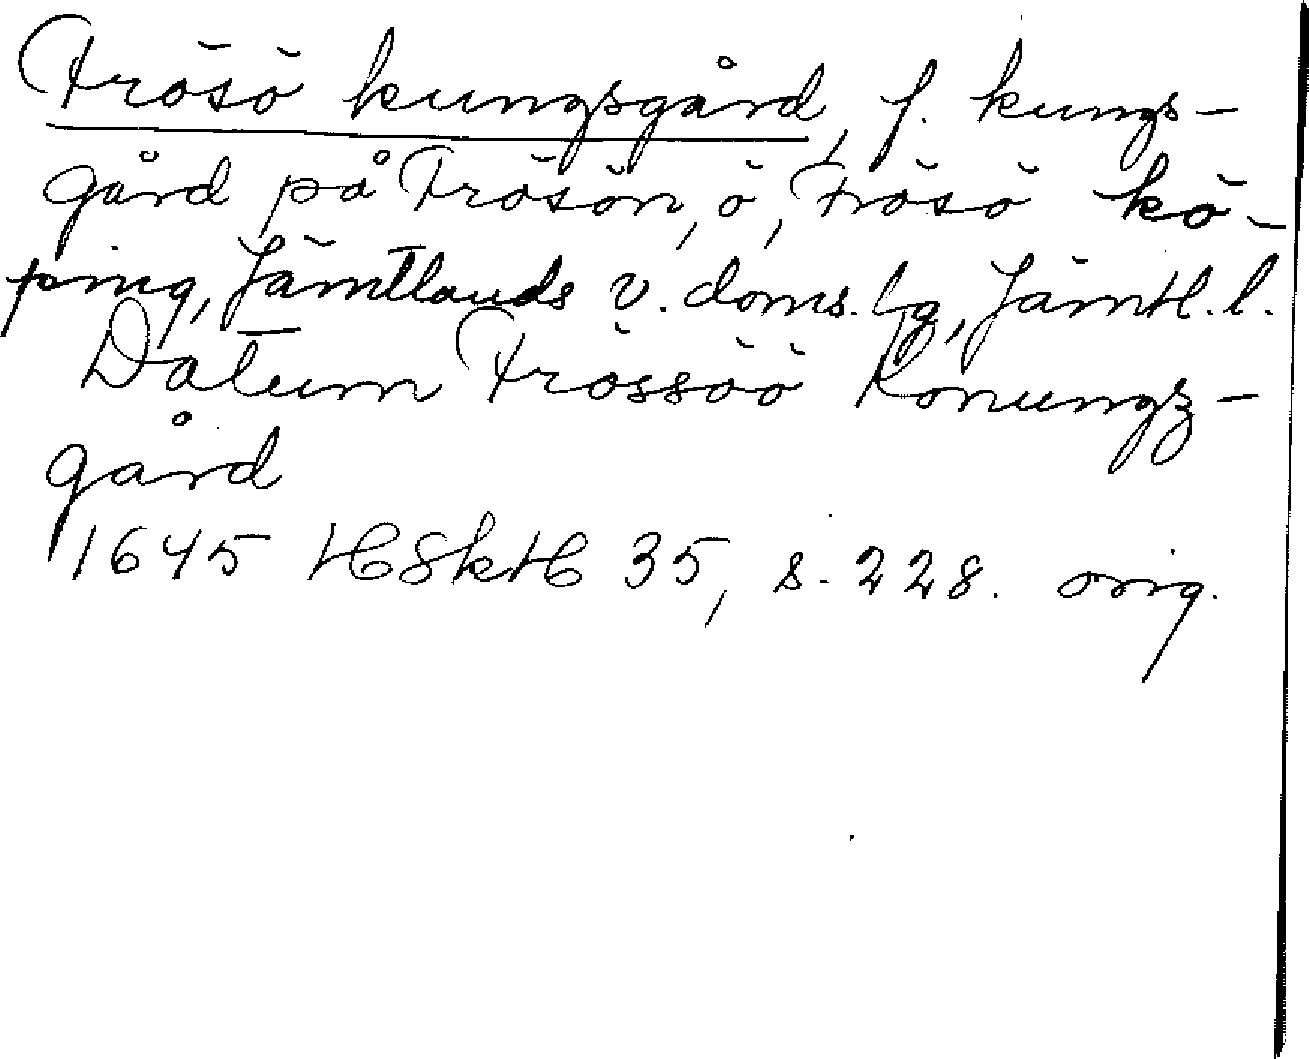 Frösö kungsgård, f. kungs-
gård på Frösön, ö, Frösö kö-
ping, Jämtlands v. doms. lg, Jämtl. l.
Datum Frössöö Konungz-
gård
1645 HSkH 35, s. 228. orig.